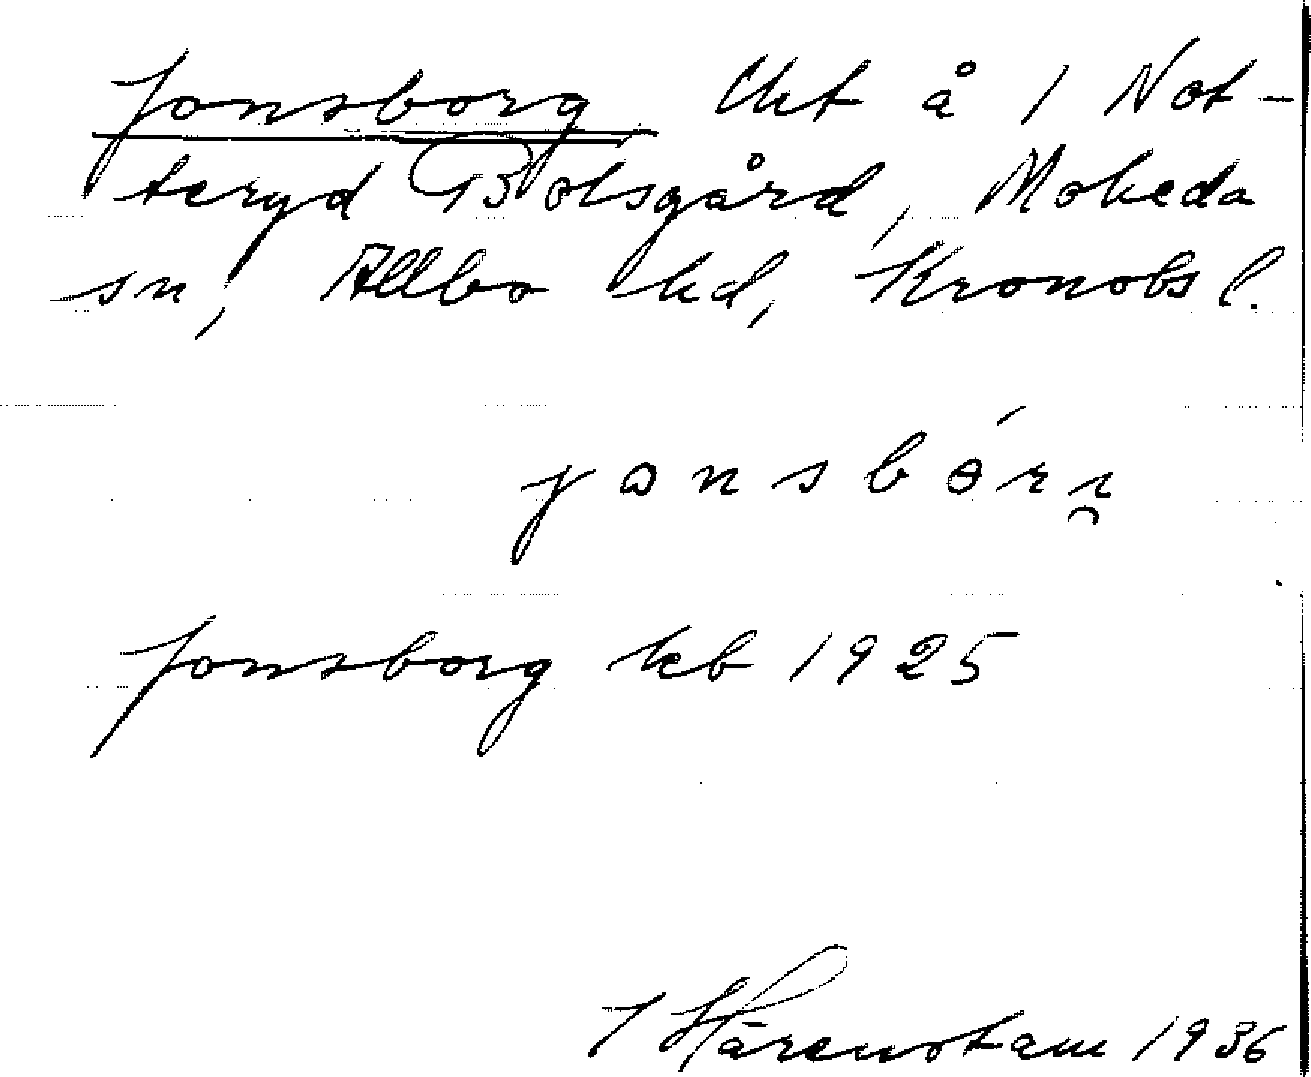 Jonsborg Uht å 1 Not-
teryd Bolsgård, Moheda
sn, Allbo hd, Kronobs l.
jonsbórı̯
Jonsborg kb 1925
J Härenstam 1936